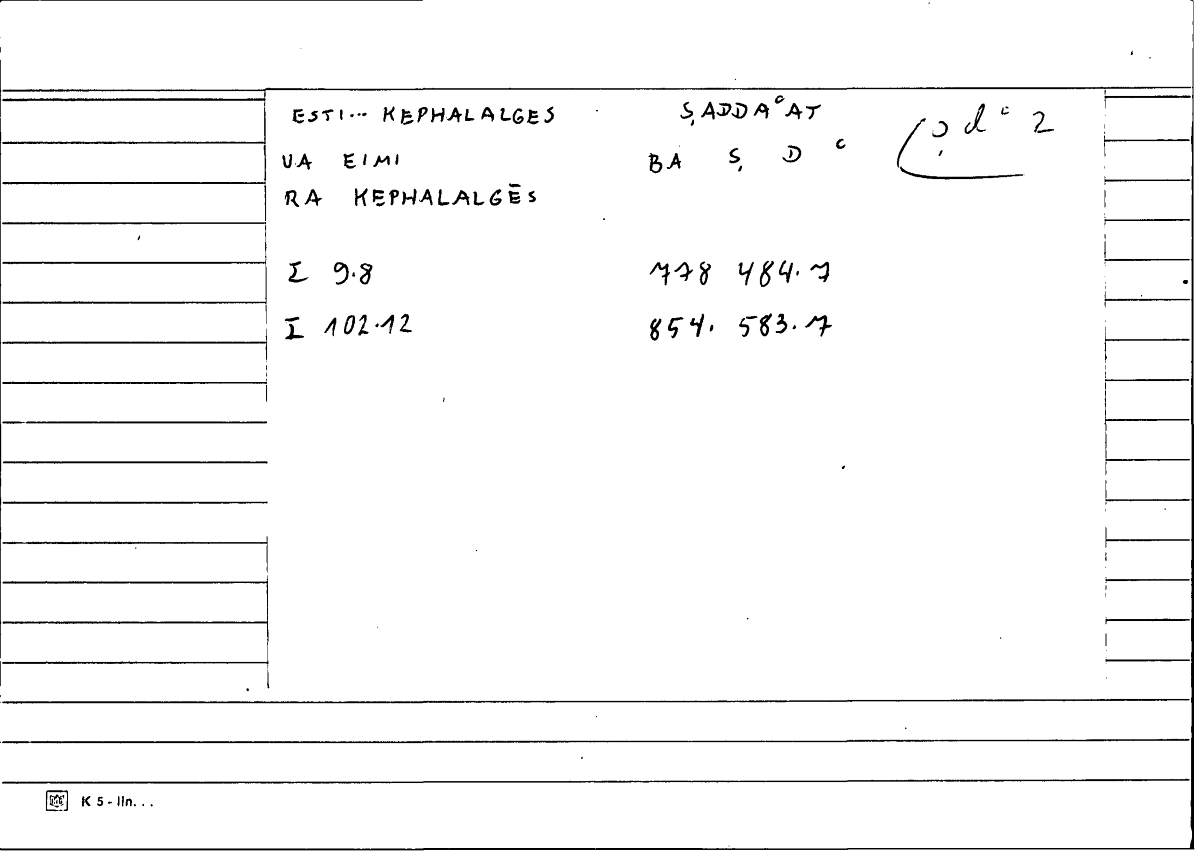 ESTI... KEPHALALGES ṢADDAᶜAT ṣdᶜ 2
VA EIMI BA Ṣ D ᶜ
RA KEPHALALGĒS
I 9.8 778 484.7
I 102.12 854. 583.7
K 5 - lin...